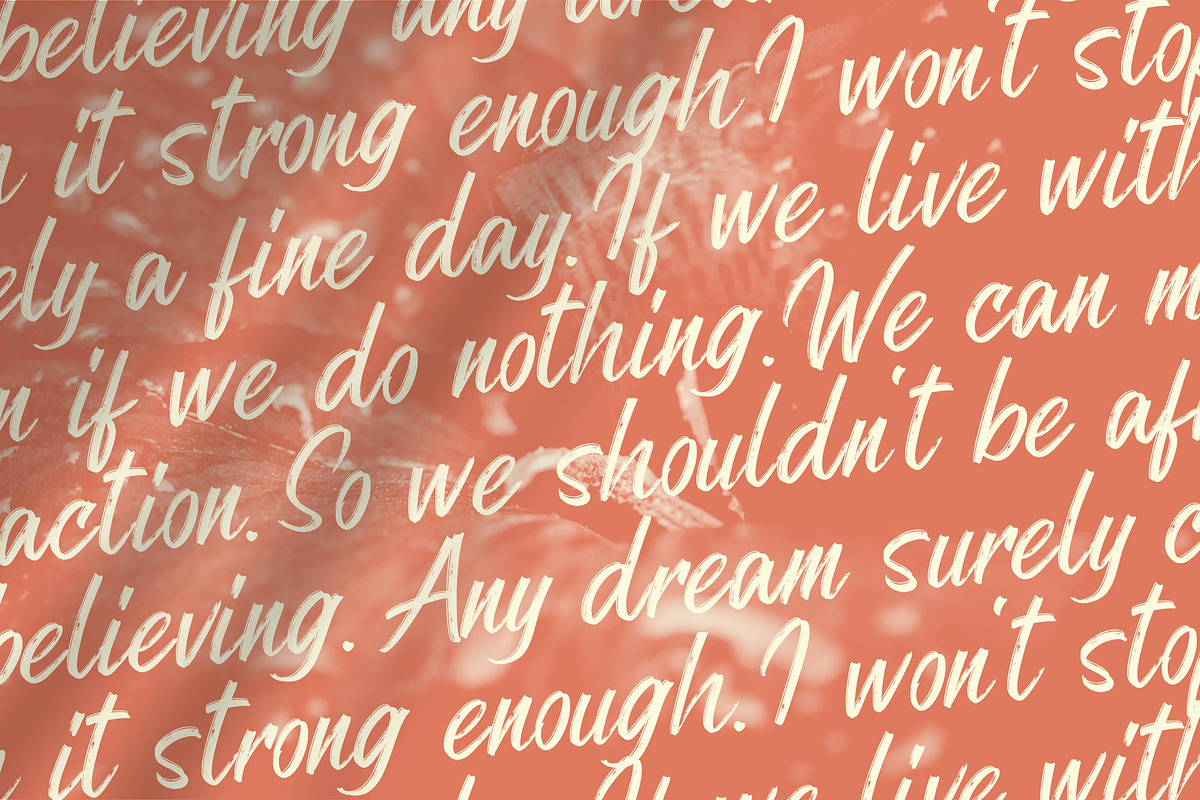 believing any dream
it strong enough I won't stop
ely a fine day. If we live with
n if we do nothing. We can m
action. So we shouldn't be af
believing. Any dream surely c
it strong enough. I won't stop
If we live with